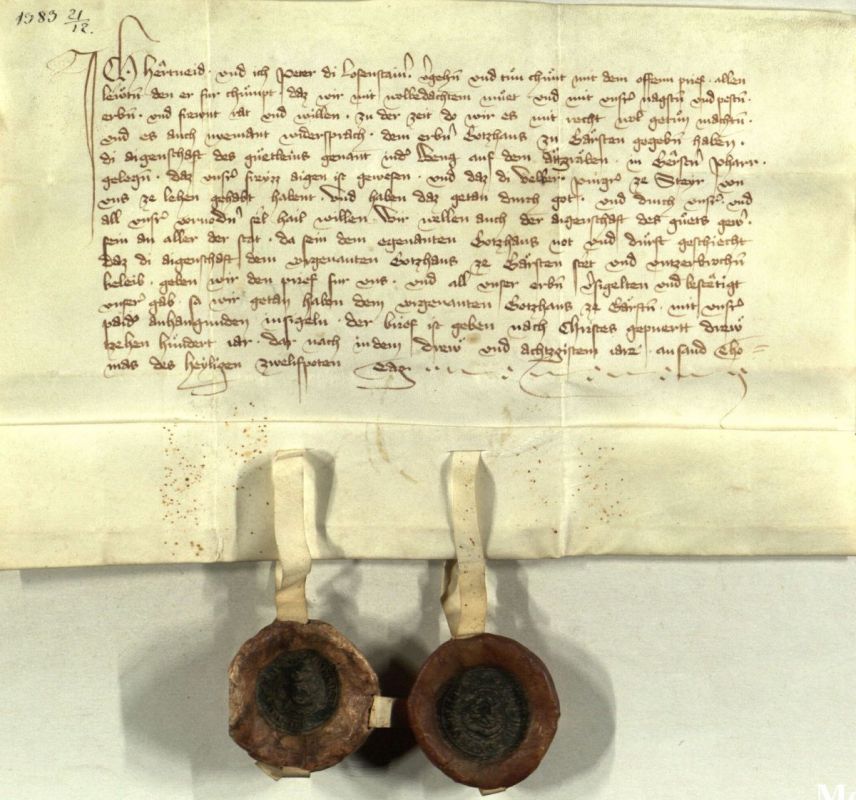 1383 21/12.
Ich Hertneid · und ich Peter di Losenstainer · vergehn und tun chunt mit dem offenn prief · allen
lewten den er fur chumpt · daz wir mit wolbedachtem muet · und mit unsrer nagstn und pestn
erbn · und frewnt rat und willen · zu der zeit do wir es mit recht wol getun machtn ·
und es auch niemant widersprach · dem erbn Gotzhaus zu Gärsten gegebn haben ·
di aigenschaft des guetleins genant Weng auf dem in Gerstn pharr ·
gelegn · daz unser freyzz aigen ist gewesen · und daz di Volker purger ze Steyr von
uns ze lehen gehabt habent · und haben daz getan durch got · und durch unser · und
all unser vorvodn sel hail willen · wir wellen auch der aigenschaft des guets gewer
sein an aller der stat · da sein dem egenanten Gotzhaus not und durft geschiecht
daz di aigenschaft dem vorgenanten Gotzhaus ze Gärsten stet und untzerbrochn
beleib · geben wir den prief fur uns · und all unser erbn versigelten und bestetigt
unser gab · so wir getan haben dem vorgenanten Gotzhaus ze Gärstn · mit unser
paider anhangunden insigeln · der brief ist geben nach Christes gepuertt drew
tzehen hundert iar · dar nach in dem drew und achtzgistem iare · an sand Tho=
mas des heyligen zwelifpoten Tag